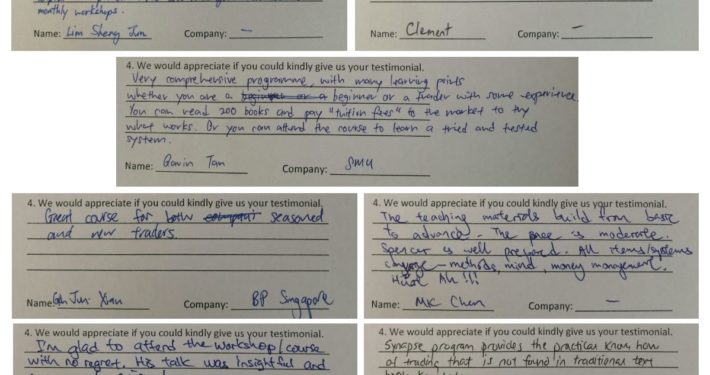 monthly workshops.
Name: Lim Sheng Jun Company: –
Name: Clement Company: –
4. We would appreciate if you could kindly give us your testimonial.
Very comprehensive programme, with many learning points
whether you are a beginner or a trader with some experience.
You can read 200 books and pay "tuition fees" to the market to try
what works. Or you can attend the course to learn a tried and tested
system.
Name: Gavin Tan Company: SMU
4. We would appreciate if you could kindly give us your testimonial.
Great course for both seasoned
and new traders.
Name: Jun Xian Company: BP Singapore
4. We would appreciate if you could kindly give us your testimonial.
The teaching materials build from basic
to advanced. The pace is moderate.
Spencer is well prepared. All items/systems
– methods, mind, money management.
Huat Ah!!!
Name: MK Chen Company: –
4. We would appreciate if you could kindly give us your testimonial.
I'm glad to attend the workshop/course
with no regret. His talk was insightful and
4. We would appreciate if you could kindly give us your testimonial.
Synapse program provides the practical know how
of trading that is not found in traditional text